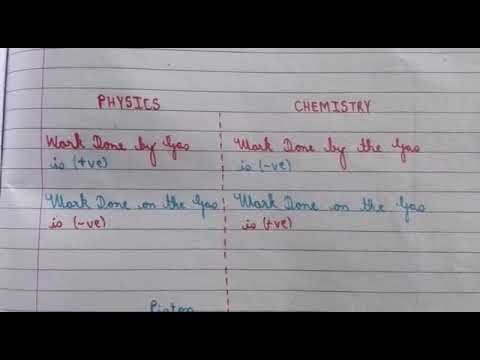 PHYSICS
CHEMISTRY
Work Done by Gas
is (+ve)
Work Done by the Gas
is (-ve)
Work Done on the Gas
is (-ve)
Work Done on the Gas
is (+ve)
Piston